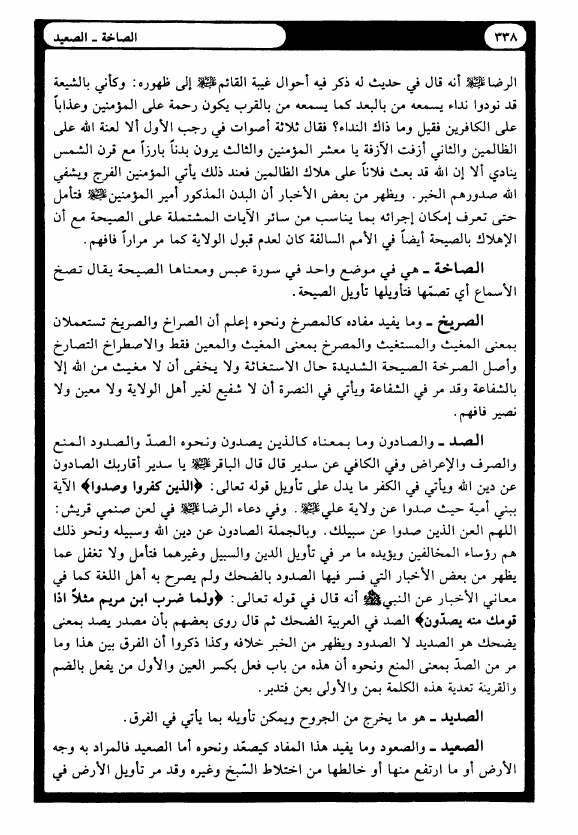 ٣٣٨
الصاخة ـ الصعيد
الرضا عليه السلام أنه قال في حديث له ذكر فيه أحوال غيبة القائم عليه السلام إلى ظهوره: وكأني بالشيعة
قد نودوا نداء يسمعه من بالبعد كما يسمعه من بالقرب يكون رحمة على المؤمنين وعذاباً
على الكافرين فقيل وما ذاك النداء؟ فقال ثلاثة أصوات في رجب الأول ألا لعنة الله على
الظالمين والثاني أزفت الآزفة يا معشر المؤمنين والثالث يرون بدناً بارزاً مع قرن الشمس
ينادي ألا إن الله قد بعث فلاناً على هلاك الظالمين فعند ذلك يأتي المؤمنين الفرج ويشفي
الله صدورهم الخبر. ويظهر من بعض الأخبار أن البدن المذكور أمير المؤمنين عليه السلام فتأمل
حتى تعرف إمكان إجرائه بما يناسب من سائر الآيات المشتملة على الصيحة مع أن
الإهلاك بالصيحة أيضاً في الأمم السالفة كان لعدم قبول الولاية كما مر مراراً فافهم.
الصاخة ـ هي في موضع واحد في سورة عبس ومعناها الصيحة يقال تصخ
الأسماع أي تصمّها فتأويلها تأويل الصيحة.
الصريخ ـ وما يفيد مفاده كالمصرخ ونحوه إعلم أن الصراخ والصريخ تستعملان
بمعنى المغيث والمستغيث والمصرخ بمعنى المغيث والمعين فقط والاصطراخ التصارخ
وأصل الصرخة الصيحة الشديدة حال الاستغاثة ولا يخفى أن لا مغيث من الله إلا
بالشفاعة وقد مر في الشفاعة ويأتي في النصرة أن لا شفيع لغير أهل الولاية ولا معين ولا
نصير فافهم.
الصد ـ والصادون وما بمعناه كالذين يصدون ونحوه الصدّ والصدود المنع
والصرف والإعراض وفي الكافي عن سدير قال قال الباقر عليه السلام يا سدير أقاربك الصادون
عن دين الله ويأتي في الكفر ما يدل على تأويل قوله تعالى: ﴿الذين كفروا وصدوا﴾ الآية
ببني أمية حيث صدوا عن ولاية علي عليه السلام. وفي دعاء الرضا عليه السلام في لعن صنمي قريش:
اللهم العن الذين صدوا عن سبيلك. وبالجملة الصادون عن دين الله وسبيله ونحو ذلك
هم رؤساء المخالفين ويؤيده ما مر في تأويل الدين والسبيل وغيرهما فتأمل ولا تغفل عما
يظهر من بعض الأخبار التي فسر فيها الصدود بالضحك ولم يصرح به أهل اللغة كما في
معاني الأخبار عن النبي صلى الله عليه وآله أنه قال في قوله تعالى: ﴿ولما ضرب ابن مريم مثلاً اذا
قومك منه يصدّون﴾ الصد في العربية الضحك ثم قال روى بعضهم بأن مصدر يصد بمعنى
يضحك هو الصديد لا الصدود ويظهر من الخبر خلافه وكذا ذكروا أن الفرق بين هذا وما
مر من الصدّ بمعنى المنع ونحوه أن هذه من باب فعل بكسر العين والأول من يفعل بالضم
والقرينة تعدية هذه الكلمة بمن والأولى بعن فتدبر.
الصديد ـ هو ما يخرج من الجروح ويمكن تأويله بما يأتي في الفرق.
الصعيد ـ والصعود وما يفيد هذا المفاد كيصعّد ونحوه أما الصعيد فالمراد به وجه
الأرض أو ما ارتفع منها أو خالطها من اختلاط السّبخ وغيره وقد مر تأويل الأرض في